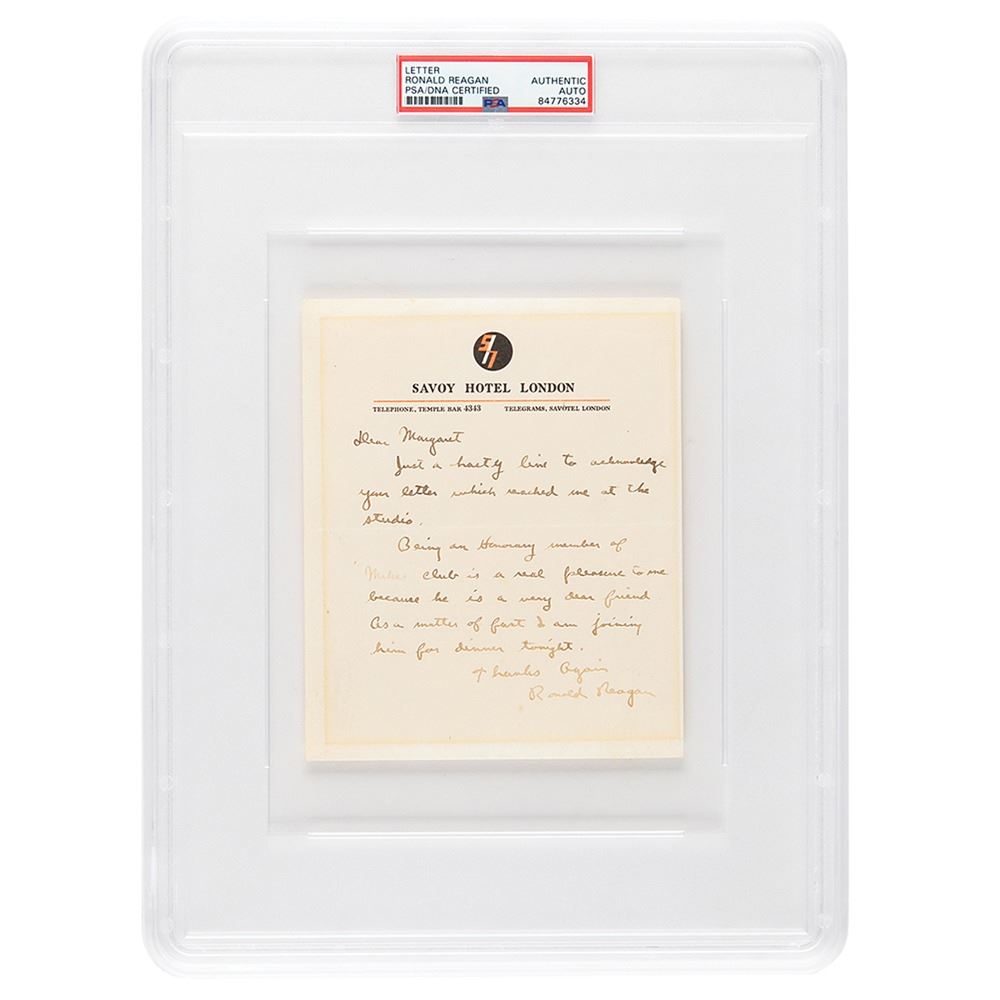 LETTER
RONALD REAGAN
PSA/DNA CERTIFIED
AUTHENTIC
AUTO
84776334
PSA
SAVOY HOTEL LONDON
TELEPHONE, TEMPLE BAR 4343 TELEGRAMS, SAVOTEL LONDON
Dear Margaret
Just a hasty line to acknowledge
your letter which reached me at the
studio.
Being an Honorary member of
Mikes club is a real pleasure to me
because he is a very dear friend
As a matter of fact I am joining
him for dinner tonight.
Thanks Again
Ronald Reagan